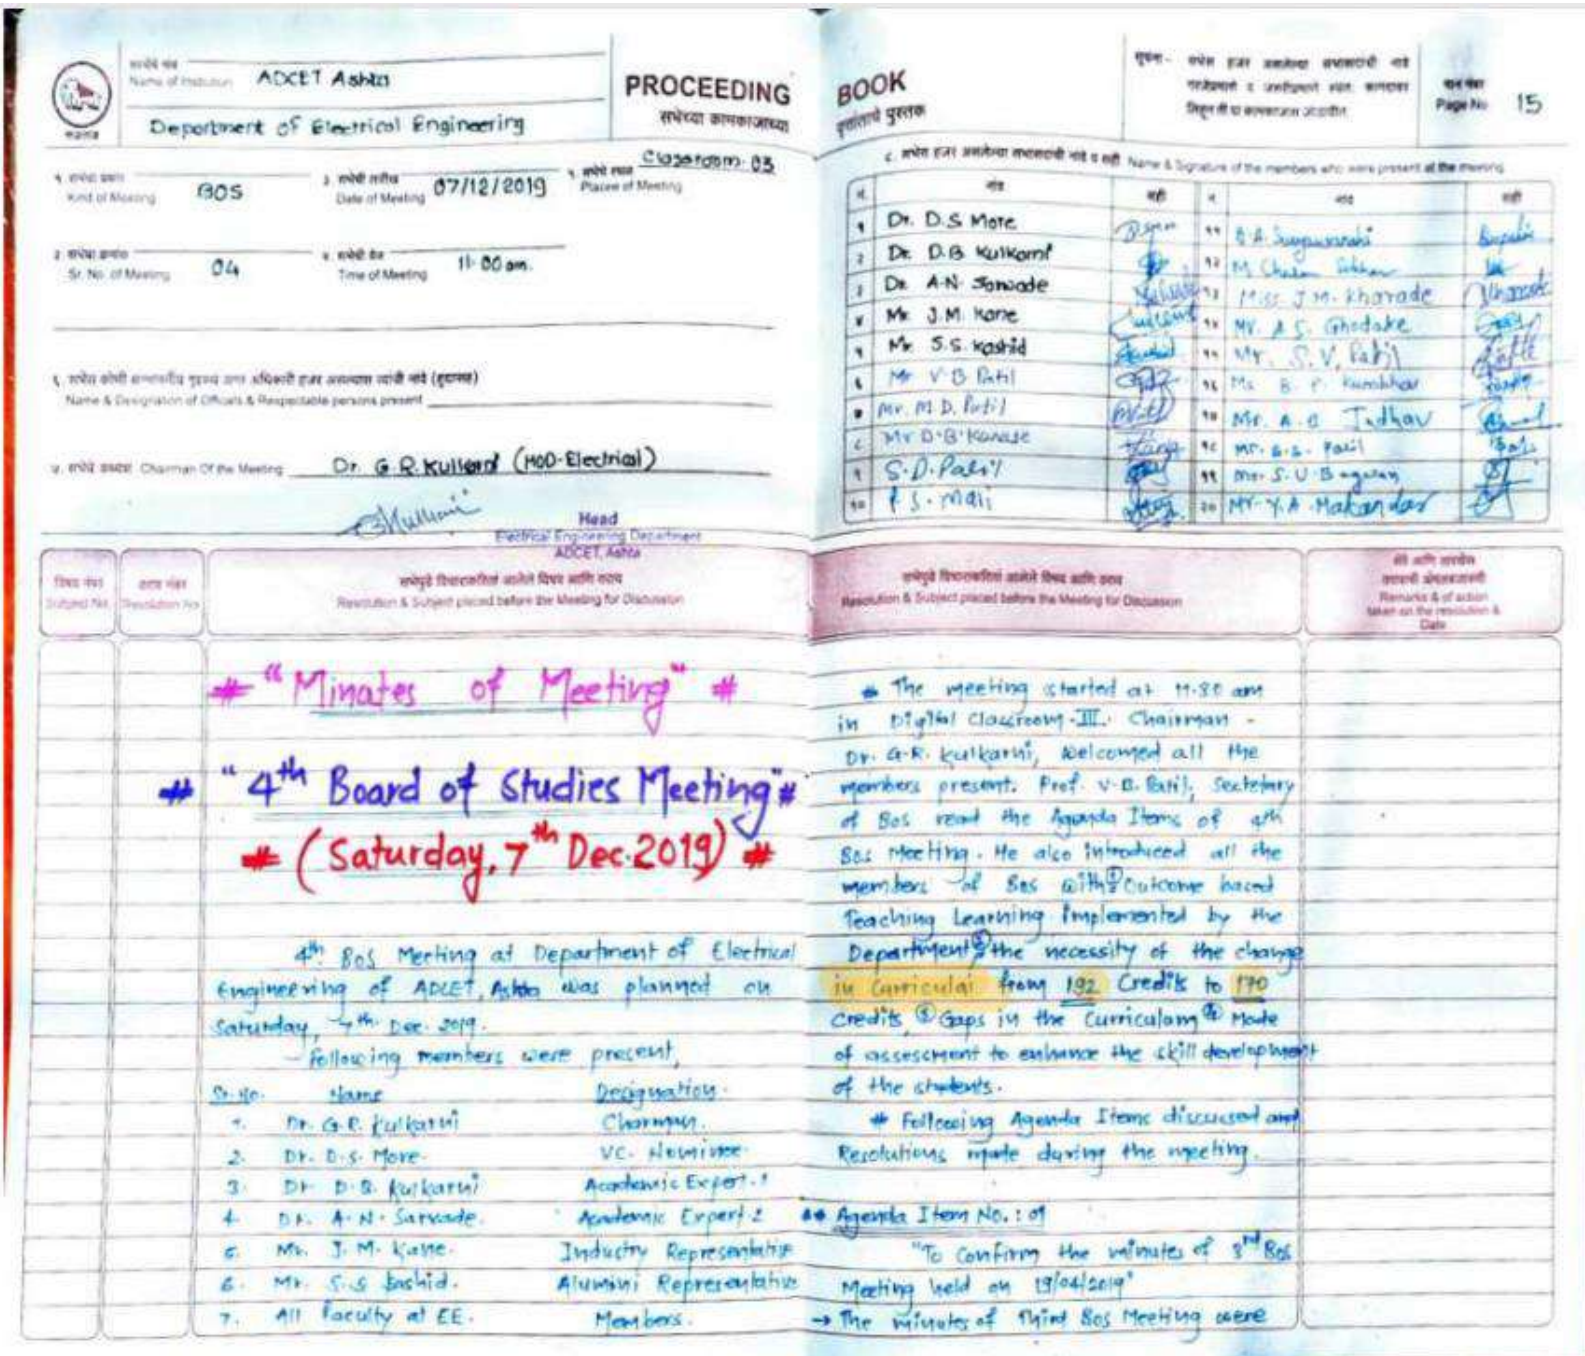 Name of Institution ADCET Ashta
Department of Electrical Engineering
PROCEEDING
सभेच्या कामकाजाच्या
Kind of Meeting BOS
Date of Meeting 07/12/2019
Places of Meeting Classroom-03
Sr. No. of Meeting 04
Time of Meeting 11-00 am.
Name & Designation of Officials & Respectable persons present
Chairman Of the Meeting Dr. G.R. Kulkarni (HOD-Electrical)
Head
Electrical Engineering Department
ADCET, Ashta
BOOK
वृत्तांताचे पुस्तक
Page No 15
Name & Signature of the members who were present at the meeting
नांव सही नांव सही
१ Dr. D.S. More
२ Dr. D.B. Kulkarni
३ Dr. A.N. Sarwade
४ Mr. J.M. Kane
५ Mr. S.S. Kashid
६ Mr V B Patil
७ Mr. M.D. Patil
८ Mr D.B. Kanase
९ S.D. Patil
१० P. S. Mali
११ B.A. Suryawanshi
१३ Miss J.M. Kharade
१४ Mr. A.S. Ghodake
१५ Mr. S.V. Patil
१६ Ms B. P. Kumbhar
१७ Mr. A. B Jadhav
१८ Mr. B.S. Patil
१९ Mr. S.U. Bagwan
२० Mr. Y.A. Makandar
Subject No.
Resolution No
Resolution & Subject placed before the Meeting for Discussion
Resolution & Subject placed before the Meeting for Discussion
Remarks & of action
taken on the resolution &
Date
# "Minates of Meeting" #
# "4th Board of Studies Meeting" #
# (Saturday, 7th Dec. 2019) #
4th BoS Meeting at Department of Electrical
Engineering of ADCET, Ashta was planned on
Saturday, 7th Dec. 2019.
Following members were present,
Sr. No. Name Designation.
1. Dr. G.R. Kulkarni Chairman.
2. Dr. D.S. More. VC. Nominee.
3. Dr D.B. Kulkarni Academic Expert-1
4. Dr. A.N. Sarwade. Academic Expert 2
5. Mr. J. M. Kane. Industry Representative
6. Mr. S.S Kashid. Alumini Representative
7. All Faculty at EE. Members.
# The meeting started at 11.30 am
in Digital Classroom-III. Chairman -
Dr. G.R. Kulkarni, welcomed all the
members present. Prof. V.B. Patil, Secretary
of Bos read the Agenda Items of 4th
Bos Meeting. He also introduced all the
members of Bos with ① Outcome based
Teaching Learning implemented by the
Department ② the necessity of the change
in Curriculai from 192 Credits to 170
credits, ③ Gaps in the Curriculam ④ Mode
of assessment to enhance the skill development
of the students.
# Following Agenda Items discussed and
Resolutions made during the meeting.
** Agenda Item No.: 01
"To Confirm the minutes of 3rd Bos
Meeting held on 19/04/2019"
→ The minutes of Third Bos Meeting were